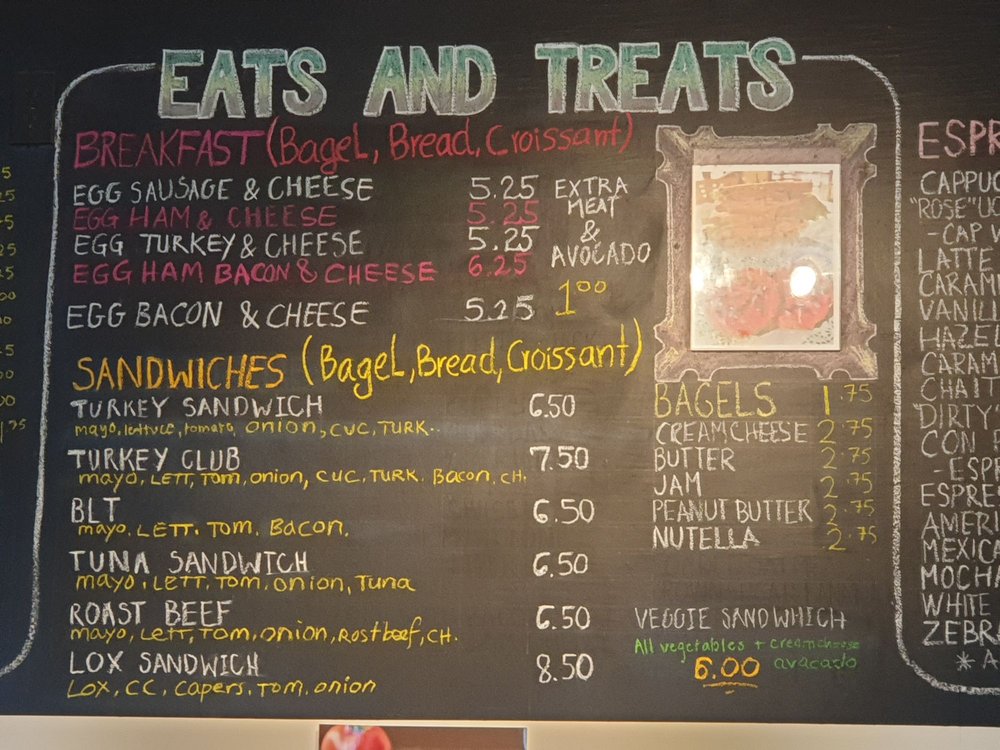 EATS AND TREATS
BREAKFAST (Bagel, Bread, Croissant)
EGG SAUSAGE & CHEESE 5.25
EGG HAM & CHEESE 5.25
EGG TURKEY & CHEESE 5.25
EGG HAM BACON & CHEESE 6.25
EGG BACON & CHEESE 5.25
EXTRA
MEAT
&
AVOCADO
1.00
SANDWICHES (Bagel, Bread, Croissant)
TURKEY SANDWICH 6.50
mayo, lettuce, tomato, onion, CUC, TURK..
TURKEY CLUB 7.50
mayo, LETT, Tom, onion, CUC, TURK. Bacon, CH.
BLT 6.50
mayo, LETT. Tom. Bacon.
TUNA SANDWICH 6.50
mayo, LETT, Tom, onion, Tuna
ROAST BEEF 6.50
mayo, LETT, Tom, onion, Rostbeef, CH.
LOX SANDWICH 8.50
LOX, CC, Capers, Tom, onion
BAGELS 1.75
CREAM CHEESE 2.75
BUTTER 2.75
JAM 2.75
PEANUT BUTTER 2.75
NUTELLA 2.75
VEGGIE SANDWHICH
All vegetables + creamcheese
6.00 avacado
ESPR
CAPPUC
"ROSE"
- CAP
LATTE
CARAM
VANILL
HAZEL
CARAM
CHAI T
"DIRTY"
CON
- ESP
ESPRE
AMERI
MEXICA
MOCHA
WHITE
ZEBRA
* A